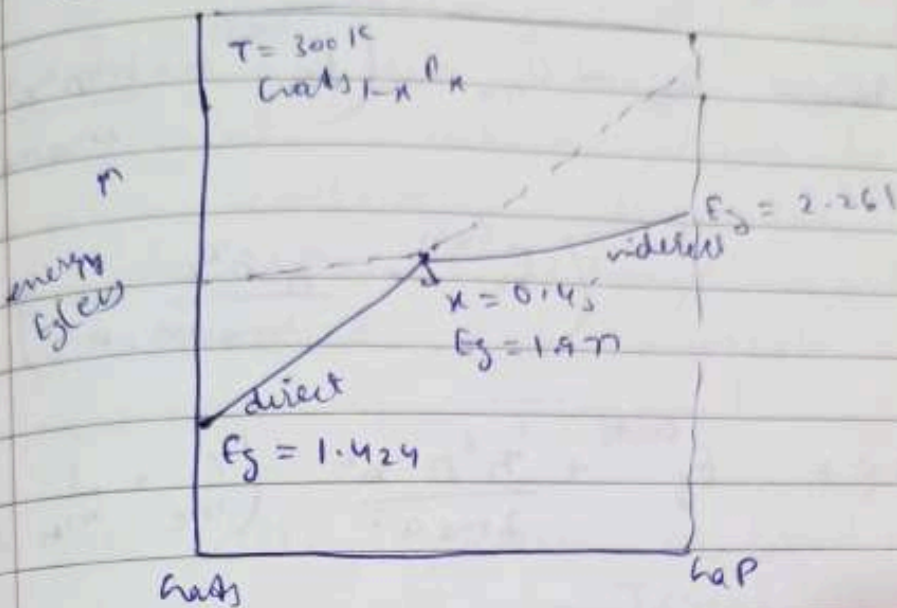 T = 300 K
GaAs 1-x P x
energy
Eg (eV)
Eg = 2.261
indirect
x = 0.45
Eg = 1.977
direct
Eg = 1.424
GaAs
GaP